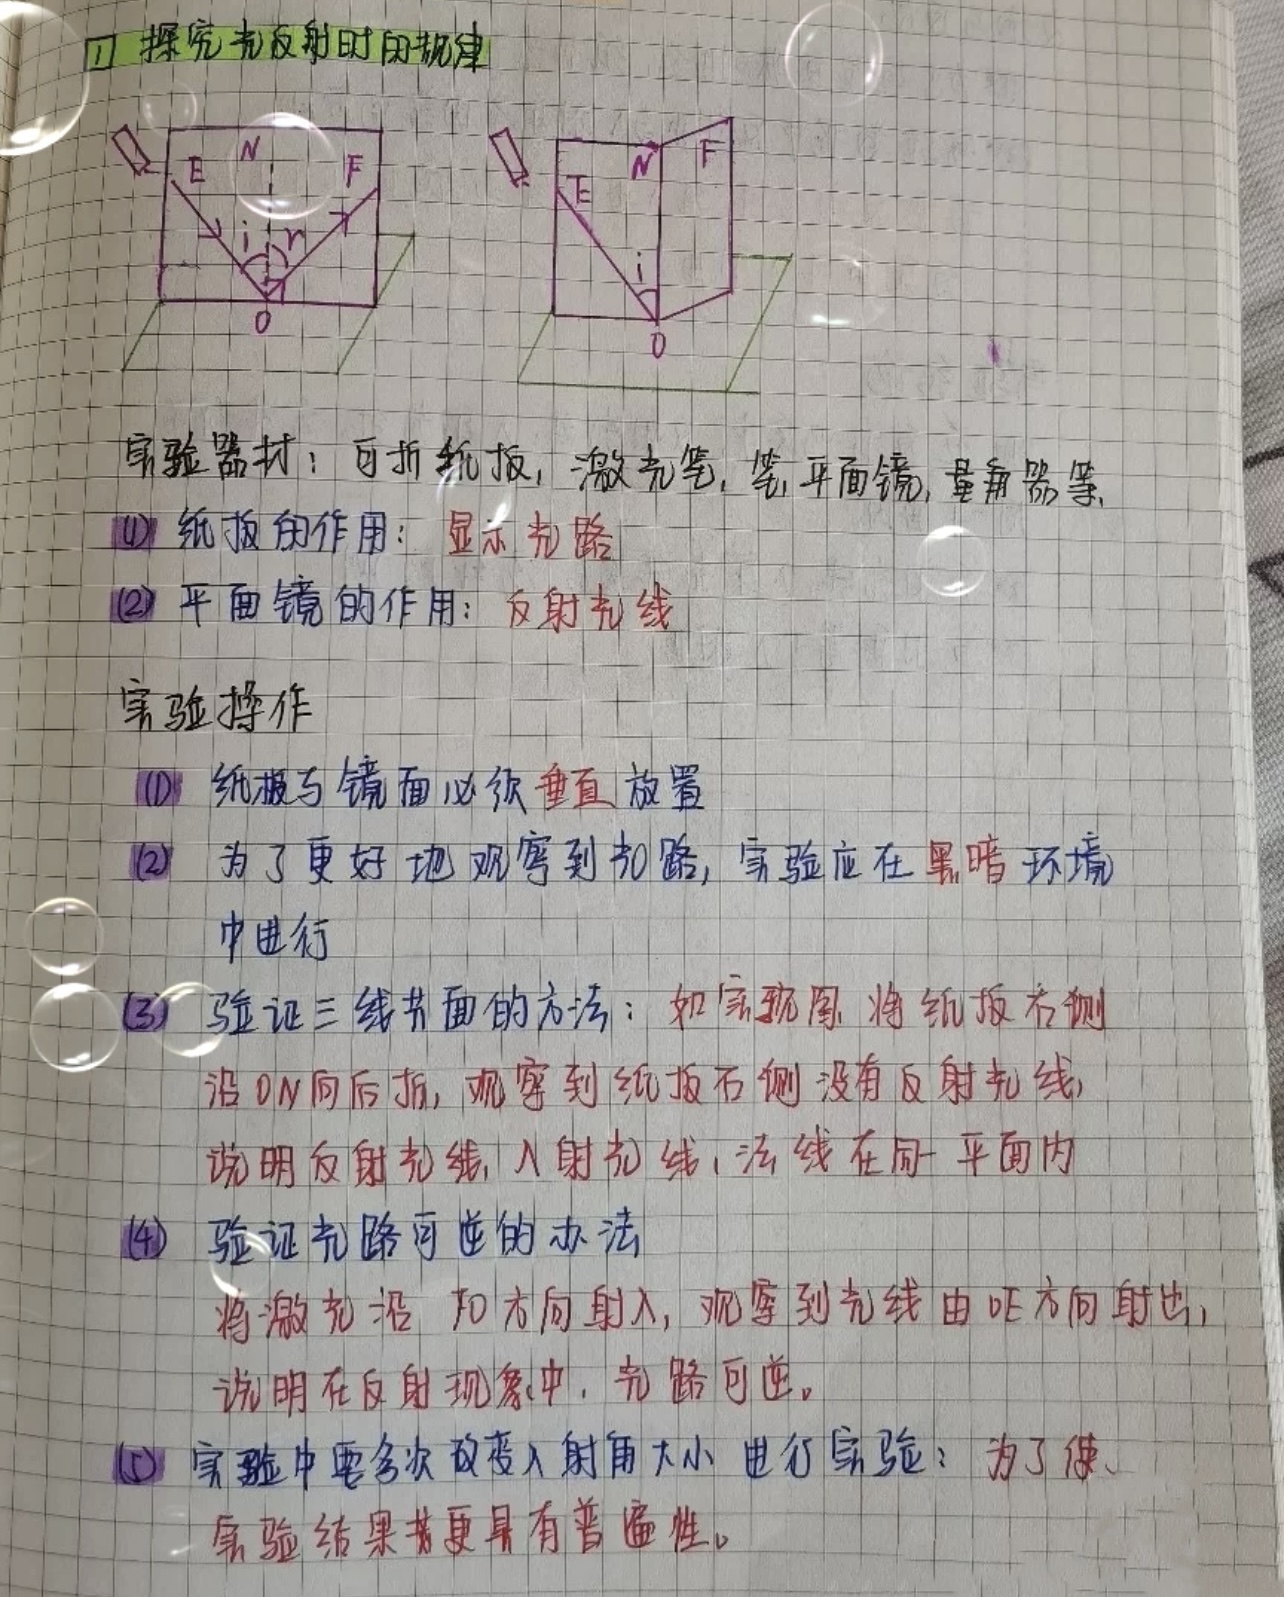 1 探究光反射时的规律
E N F
i r
O
E N F
i
O
实验器材：可折纸板，激光笔，笔，平面镜，量角器等.
(1) 纸板的作用：显示光路
(2) 平面镜的作用：反射光线
实验操作
(1) 纸板与镜面必须垂直放置
(2) 为了更好地观察到光路，实验应在黑暗环境
中进行
(3) 验证三线共面的方法：如实验图 将纸板右侧
沿ON向后折，观察到纸板右侧没有反射光线，
说明反射光线，入射光线，法线在同一平面内
(4) 验证光路可逆的办法
将激光沿 FO方向射入，观察到光线由OE方向射出，
说明在反射现象中，光路可逆。
(5) 实验中要多次改变入射角大小进行实验：为了使
实验结果更具有普遍性。